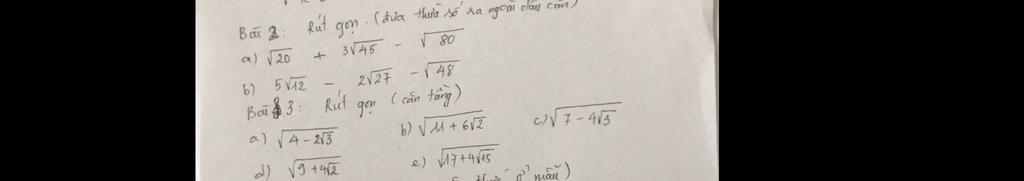 Bài 2: Rút gọn. (đưa thừa số ra ngoài dấu căn)
a) √20 + 3√45 - √80
b) 5√12 - 2√27 - √48
Bài 3: Rút gọn (căn tầng)
a) √(4-2√3) b) √(11+6√2) c) √(7-4√3)
d) √(9+4√2) e) √(17+4√15)
ở mẫu)